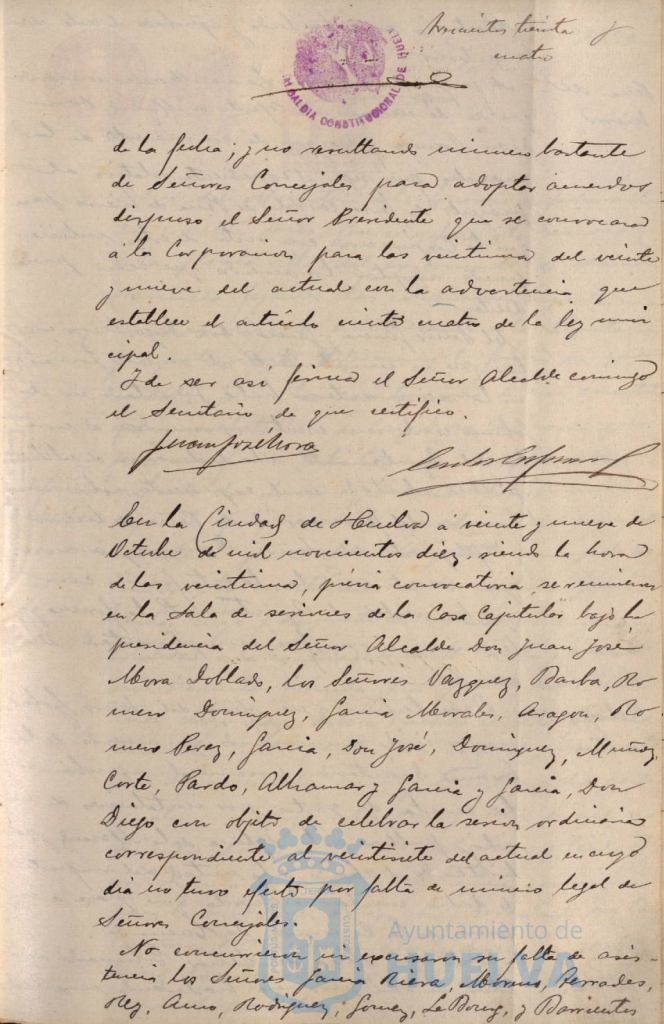 treinta y
cuatro
ALCALDIA CONSTITUCIONAL DE HUELVA
de la fecha; y no resultando número bastante
de Señores Concejales para adoptar acuerdos
dispuso el Señor Presidente que se convocara
á la Corporacion para las veintiuna del veinte
y nueve del actual con la advertencia que
establece el artículo ciento cuatro de la ley muni
cipal.
Y de ser así firma el Señor Alcalde conmigo
el Secretario de que certifico.
Juan José Mora
En la Ciudad de Huelva á veinte y nueve de
Octubre de mil novecientos diez, siendo la hora
de las veintiuna, prévia convocatoria, se reunieron
en la Sala de sesiones de la Casa Capitular bajo la
presidencia del Señor Alcalde Don Juan José
Mora Doblado, los Señores Vazquez, Barba, Ro
mero Dominguez, Garcia Morales, Aragon, Ro
mero Perez, Garcia, Don José, Dominguez, Muñoz,
Corte, Pardo, Alhamar y Garcia y Garcia, Don
Diego con objeto de celebrar la sesion ordinaria
correspondiente al veintisiete del actual en cuyo
dia no tuvo efecto por falta de número legal de
Señores Concejales.
No concurrieron ni excusaron su falta de asis-
tencia los Señores Garcia Riera, Moreno, Terrades,
Rey, Amo, Rodriguez, Gomez, Le Bourg, y Barrientos
Ayuntamiento de
HUELVA